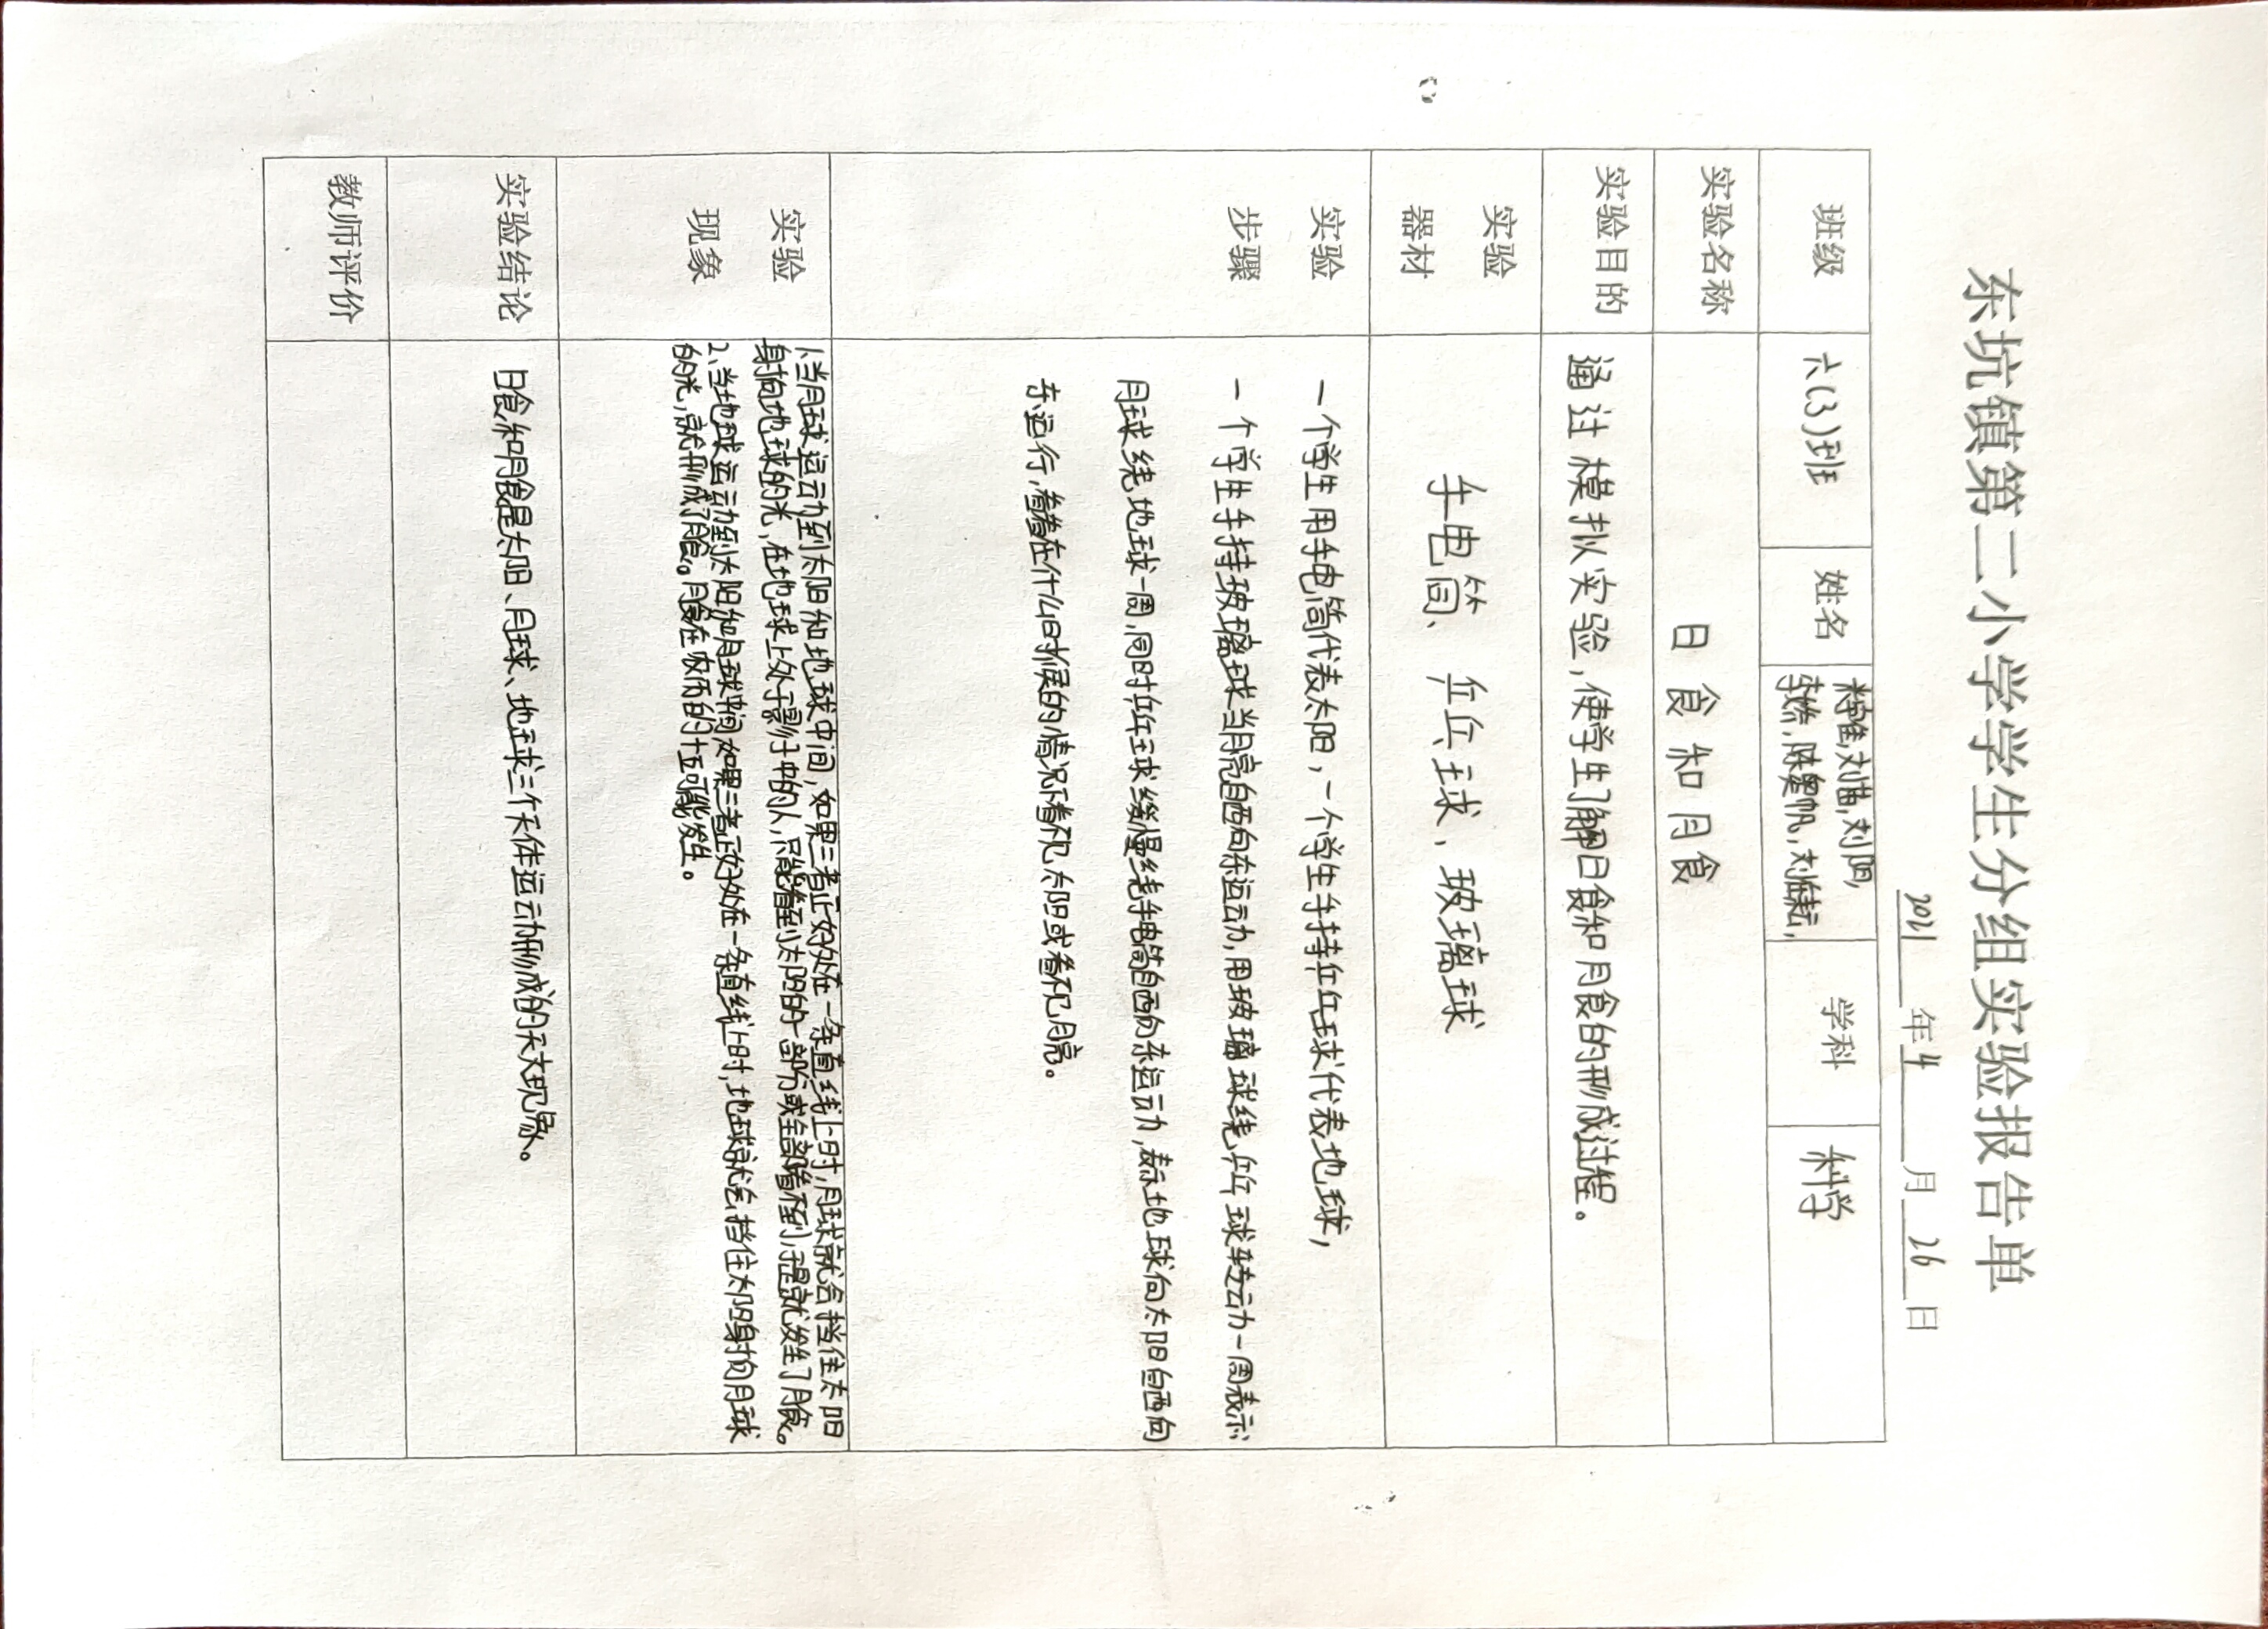 东坑镇第二小学学生分组实验报告单
2021 年 4 月 26 日
班级 六(3)班 姓名 刘 刘阳, 陈奥帆, 刘 学科 科学
实验名称 日食和月食
实验目的 通过模拟实验,使学生了解日食和月食的形成过程。
实验器材 手电筒、乒乓球,玻璃球
实验步骤
一个学生用手电筒代表太阳,一个学生手持乒乓球代表地球,
一个学生手持玻璃球当月亮自西向东运动,用玻璃球绕乒乓球转动一周表示
月球绕地球一周,同时乒乓球缓慢绕手电筒自西向东运动,表示地球向太阳自西向
东运行,看看在什么时候的情况下看不见太阳或看不见月亮。
实验现象
1.当月球运动到太阳和地球中间,如果三者正好处在一条直线上时,月球就会挡住太阳
身抅地球的光,在地球上处于影子中的人,只能看到太阳的一部分或全部看不到,于是就发生了月食。
2.当地球运动到太阳和月球中间,如果三者正好处在一条直线上时,地球就会挡住太阳身抅月球
的光,就形成了月食。月食在农历的十五可能发生。
实验结论 日食和月食是太阳、月球、地球三个天体运动形成的天文现象。
教师评价